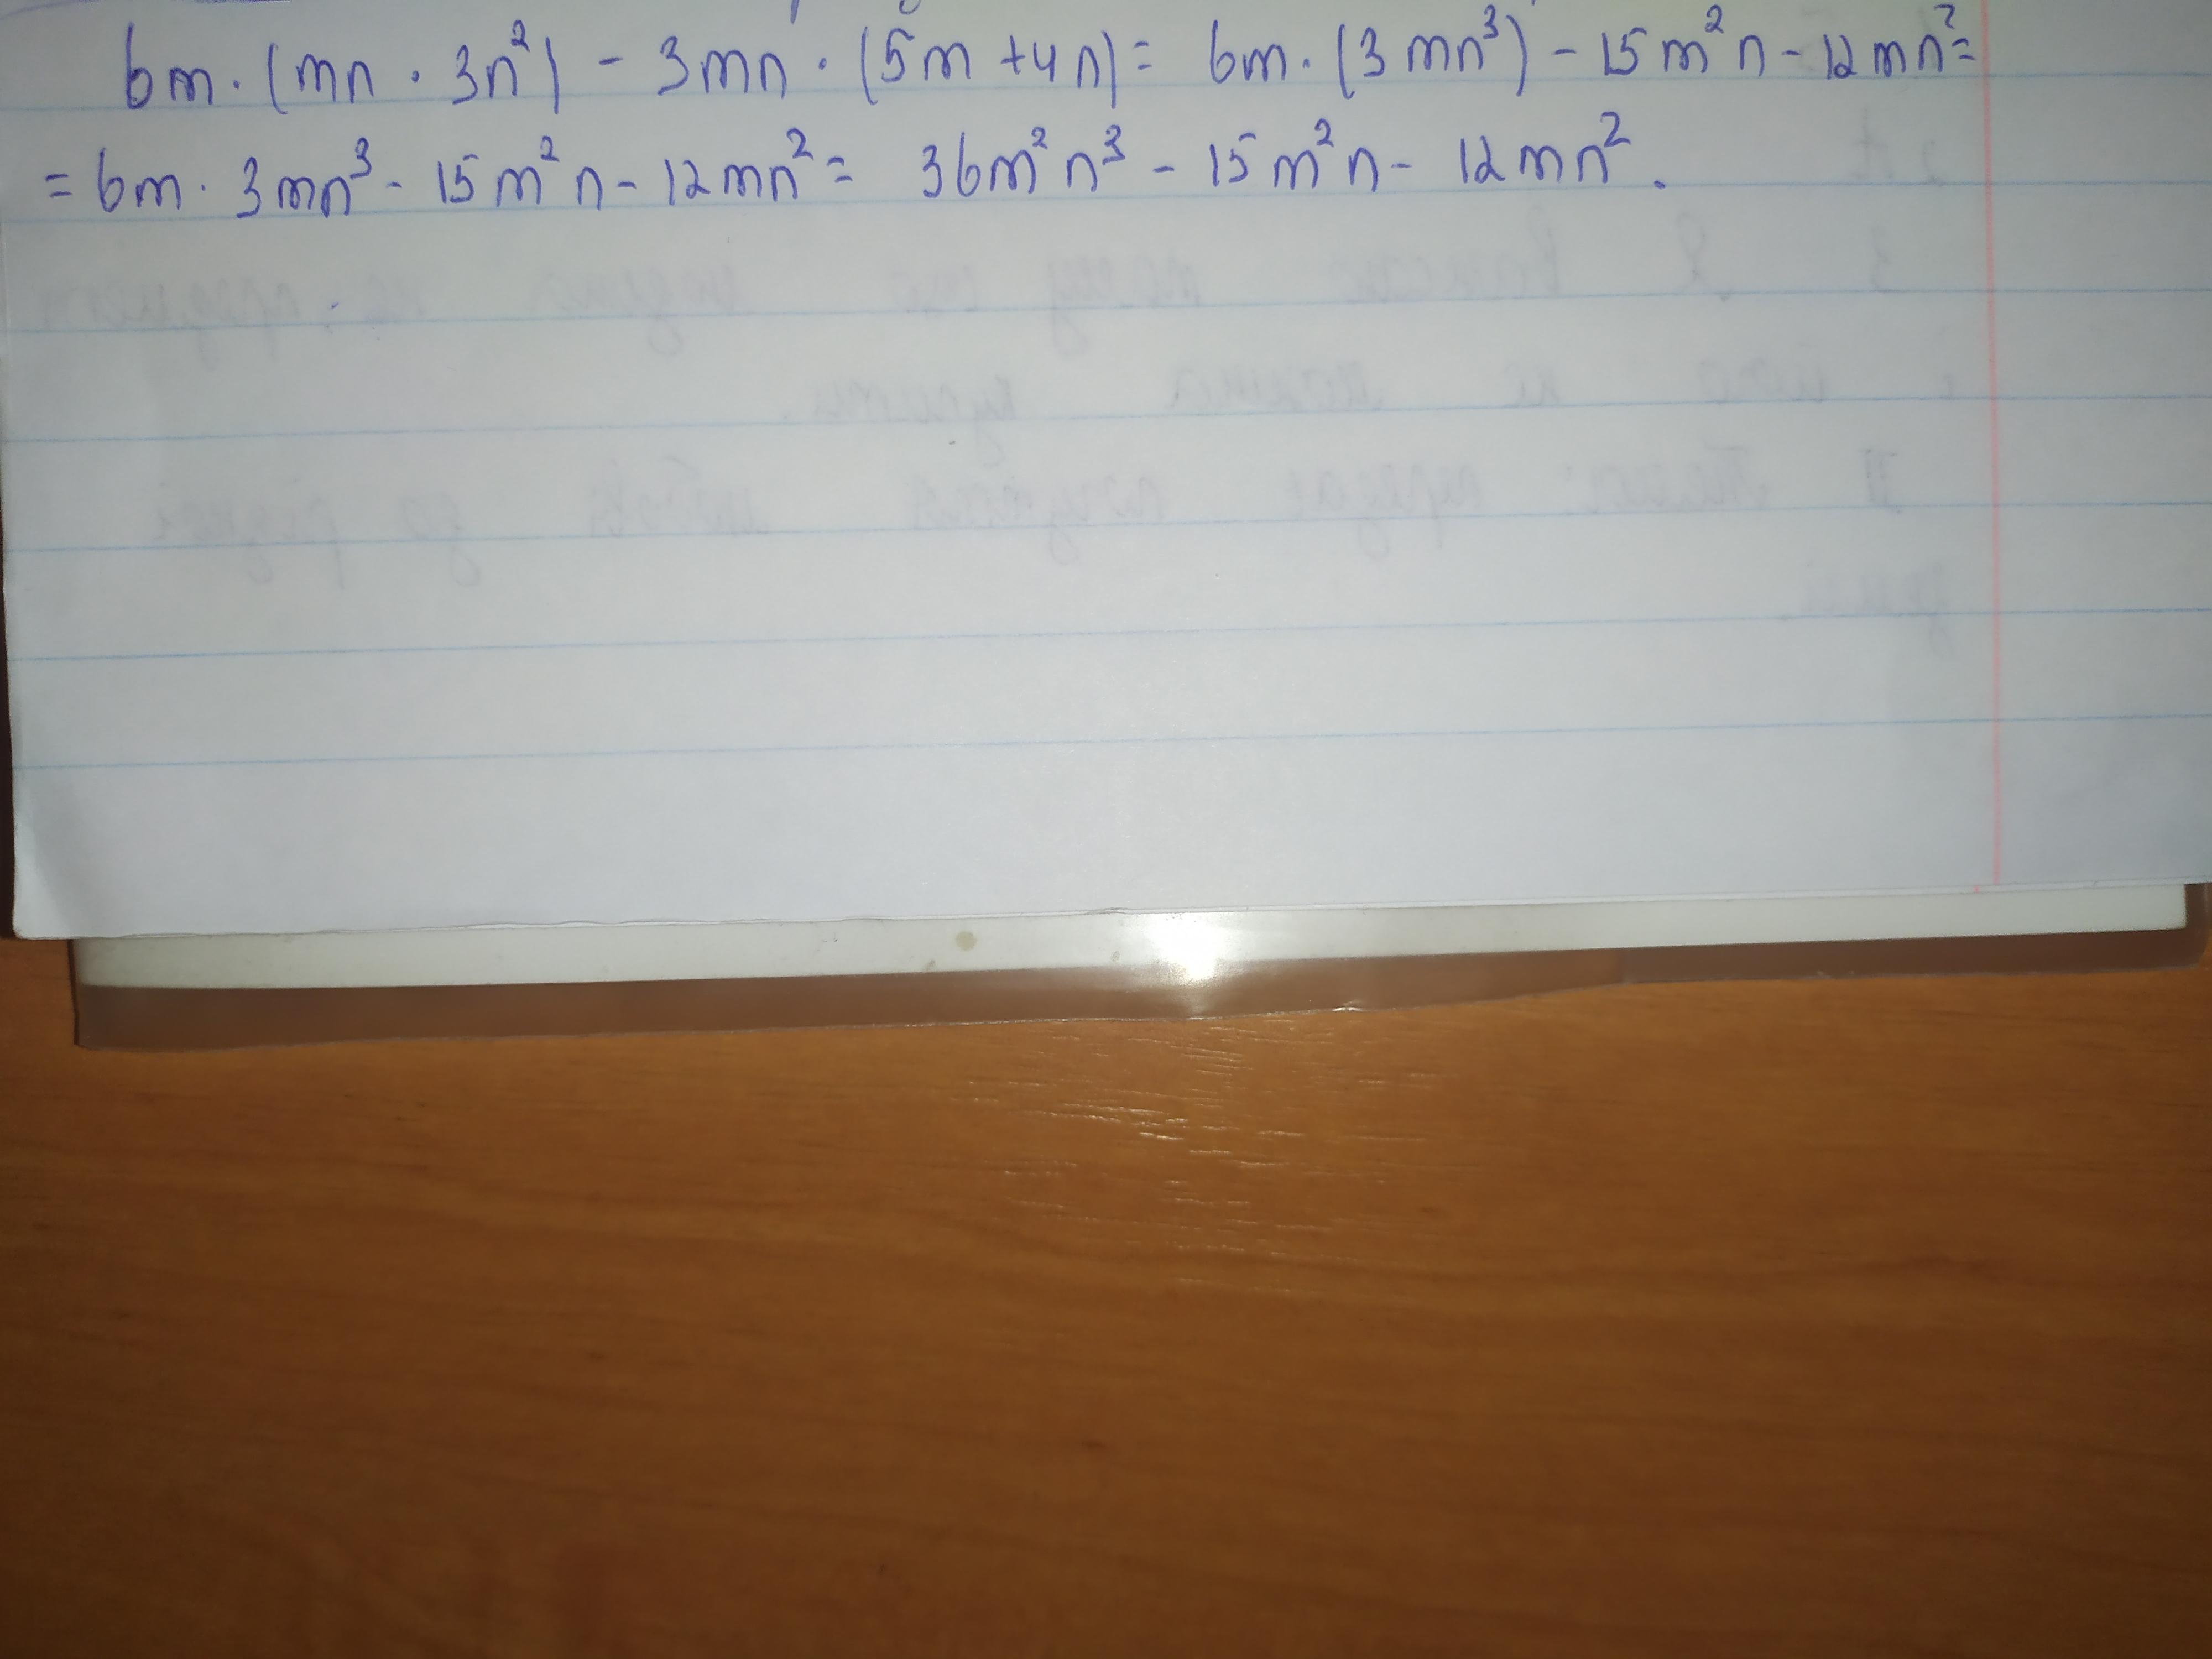 6m · (mn · 3n²) - 3mn · (5m + 4n) = 6m · (3mn³) - 15m²n - 12mn² =
= 6m · 3mn³ - 15m²n - 12mn² = 36m²n³ - 15m²n - 12mn².